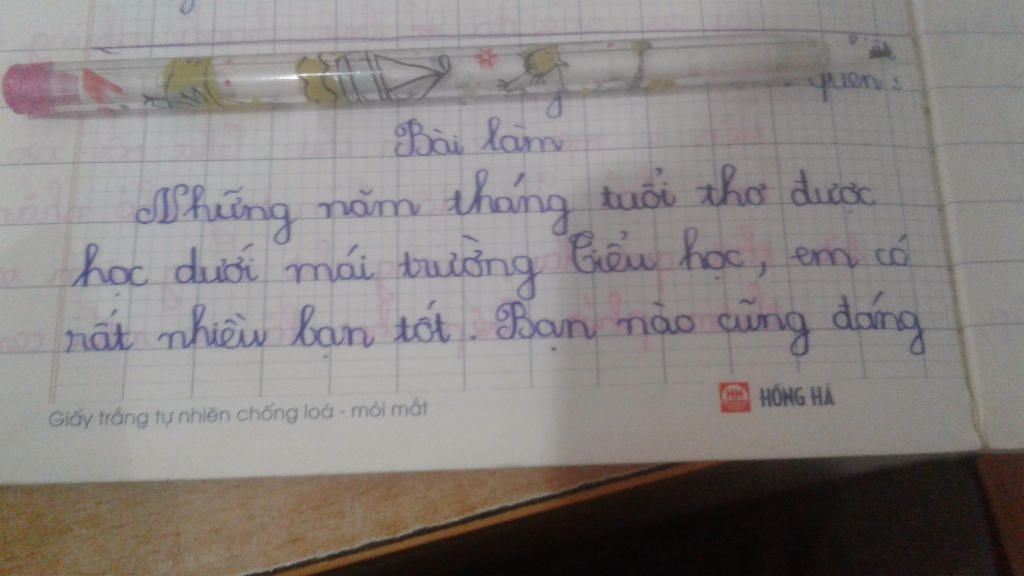 quen:
Bài làm
Những năm tháng tuổi thơ được
học dưới mái trường Tiểu học, em có
rất nhiều bạn tốt. Bạn nào cũng đáng
Giấy trắng tự nhiên chống loá - mỏi mắt
HH HỒNG HÀ